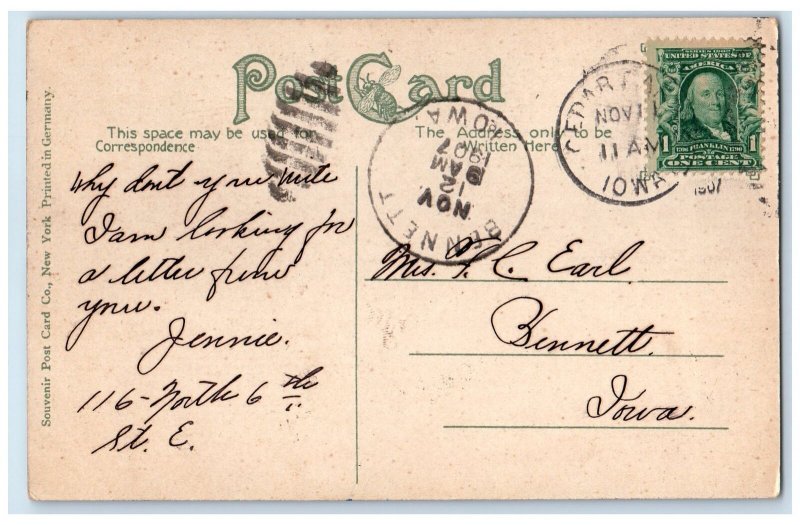 Post Card
This space may be used for
Correspondence
The Address only to be
Written Here
Souvenir Post Card Co., New York Printed in Germany.
Why don't you write
I am looking for
a letter from
you.
Jennie.
116 - North 6th
St. E.
Mrs. F. C. Earl.
Bennett.
Iowa.
BENNETT
IOWA
NOV
12
9 AM
1907
CEDAR
NOV 11
11 AM
IOWA
1907
SERIES 1902
UNITED STATES OF
AMERICA
1706 FRANKLIN 1790
1 POSTAGE 1
ONE CENT